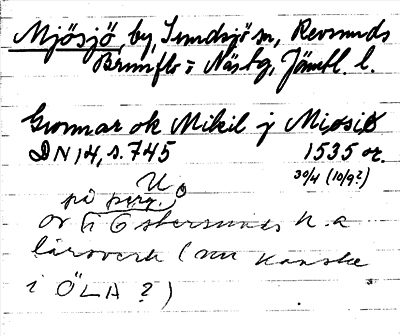 Mjösjö, by, Sundsjö sn, Revsunds
Brunflo o Näs bg, Jämtl. l.
Gunnar ok Mikil j Miosiø
DN 14, s. 745 1535 or.
30/4 (10/9?)
på perg. U
or h Östersunds h. a
läroverk (nu kanske
i ÖLA?)